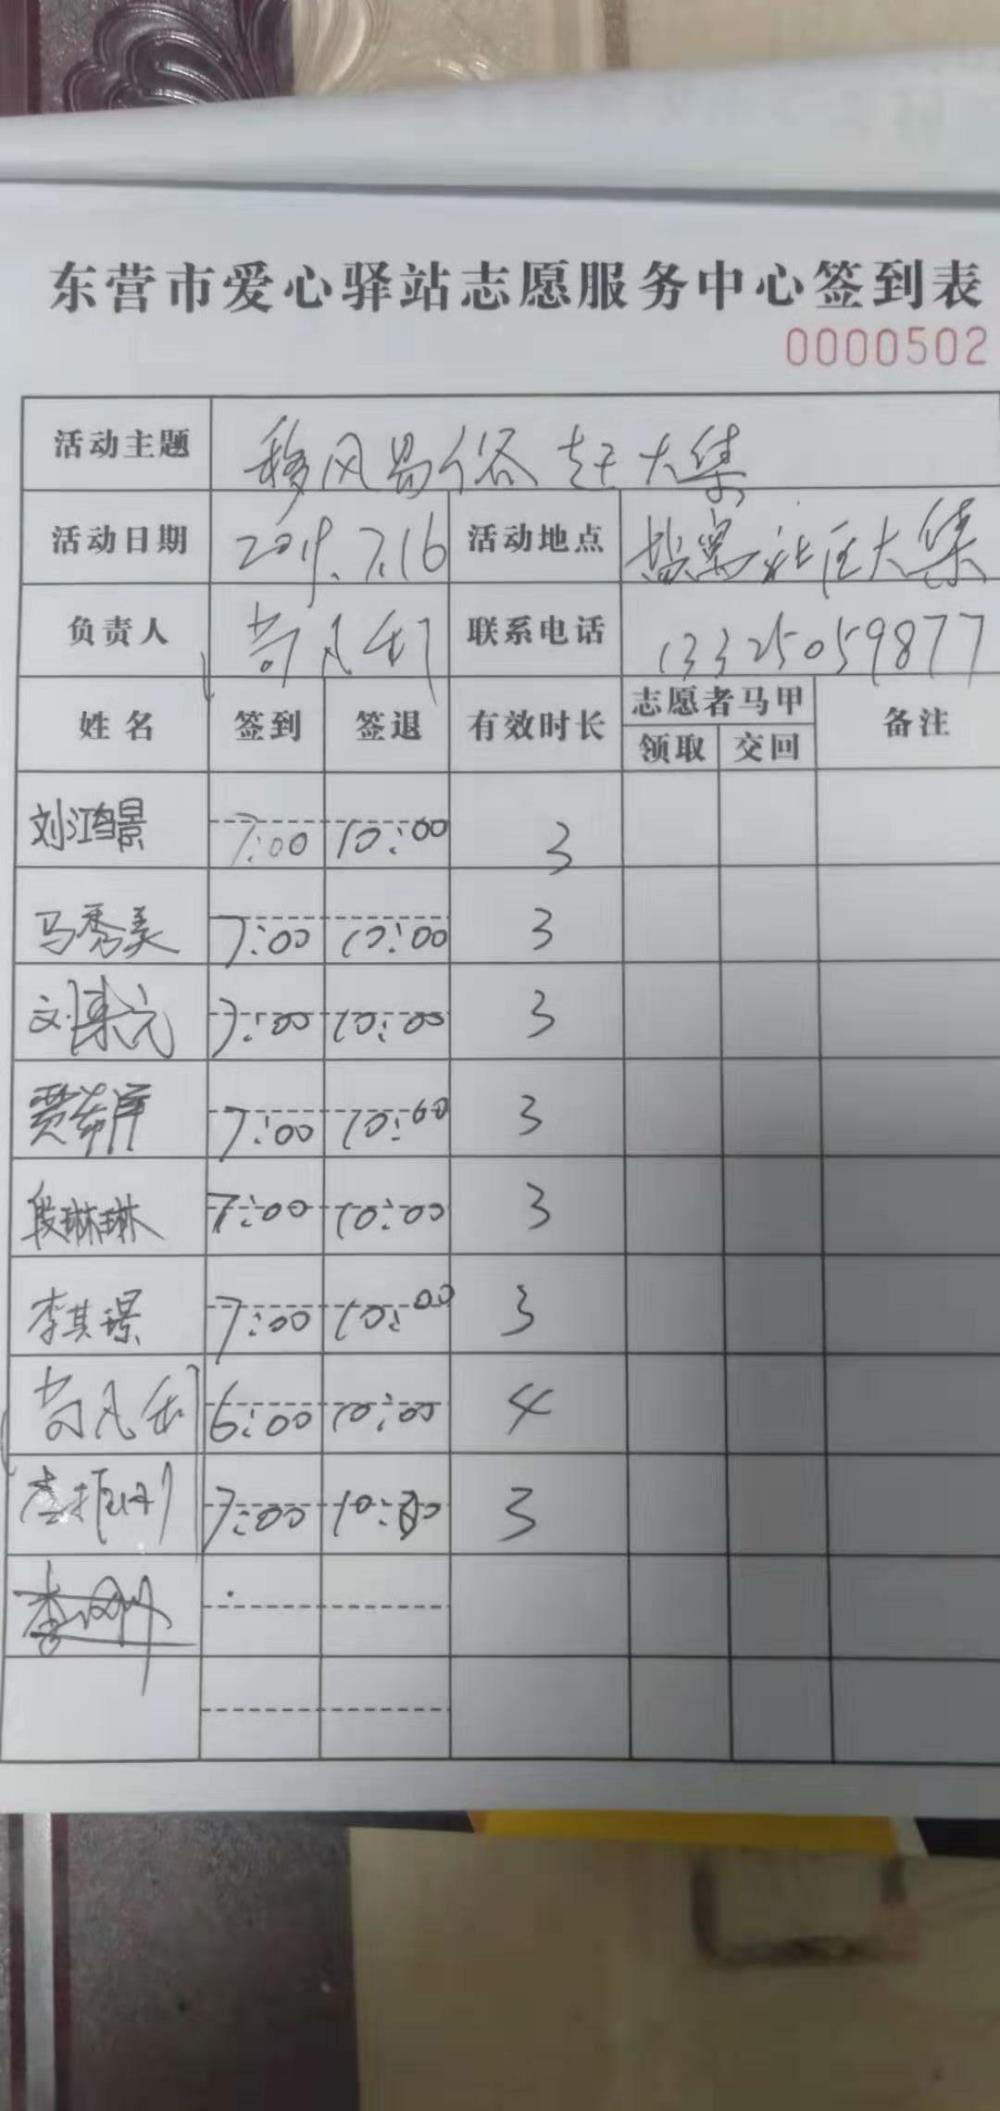 东营市爱心驿站志愿服务中心签到表
0000502
活动主题 移风易俗赶大集
活动日期 2019.7.16 活动地点 盐窝社区大集
负责人 联系电话 13325059877
姓名 签到 签退 有效时长 志愿者马甲 备注
领取 交回
刘鸿景 7:00 10:00 3
马秀美 7:00 10:00 3
刘 元 7:00 10:00 3
贾 7:00 10:00 3
段琳琳 7:00 10:00 3
李其璟 7:00 10:00 3
6:00 10:00 4
7:00 10:00 3